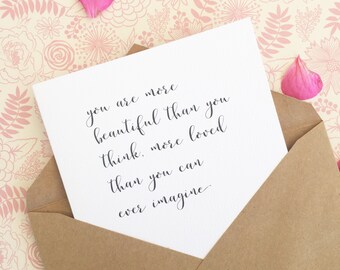 you are more
beautiful than you
think, more loved
than you can
ever imagine.